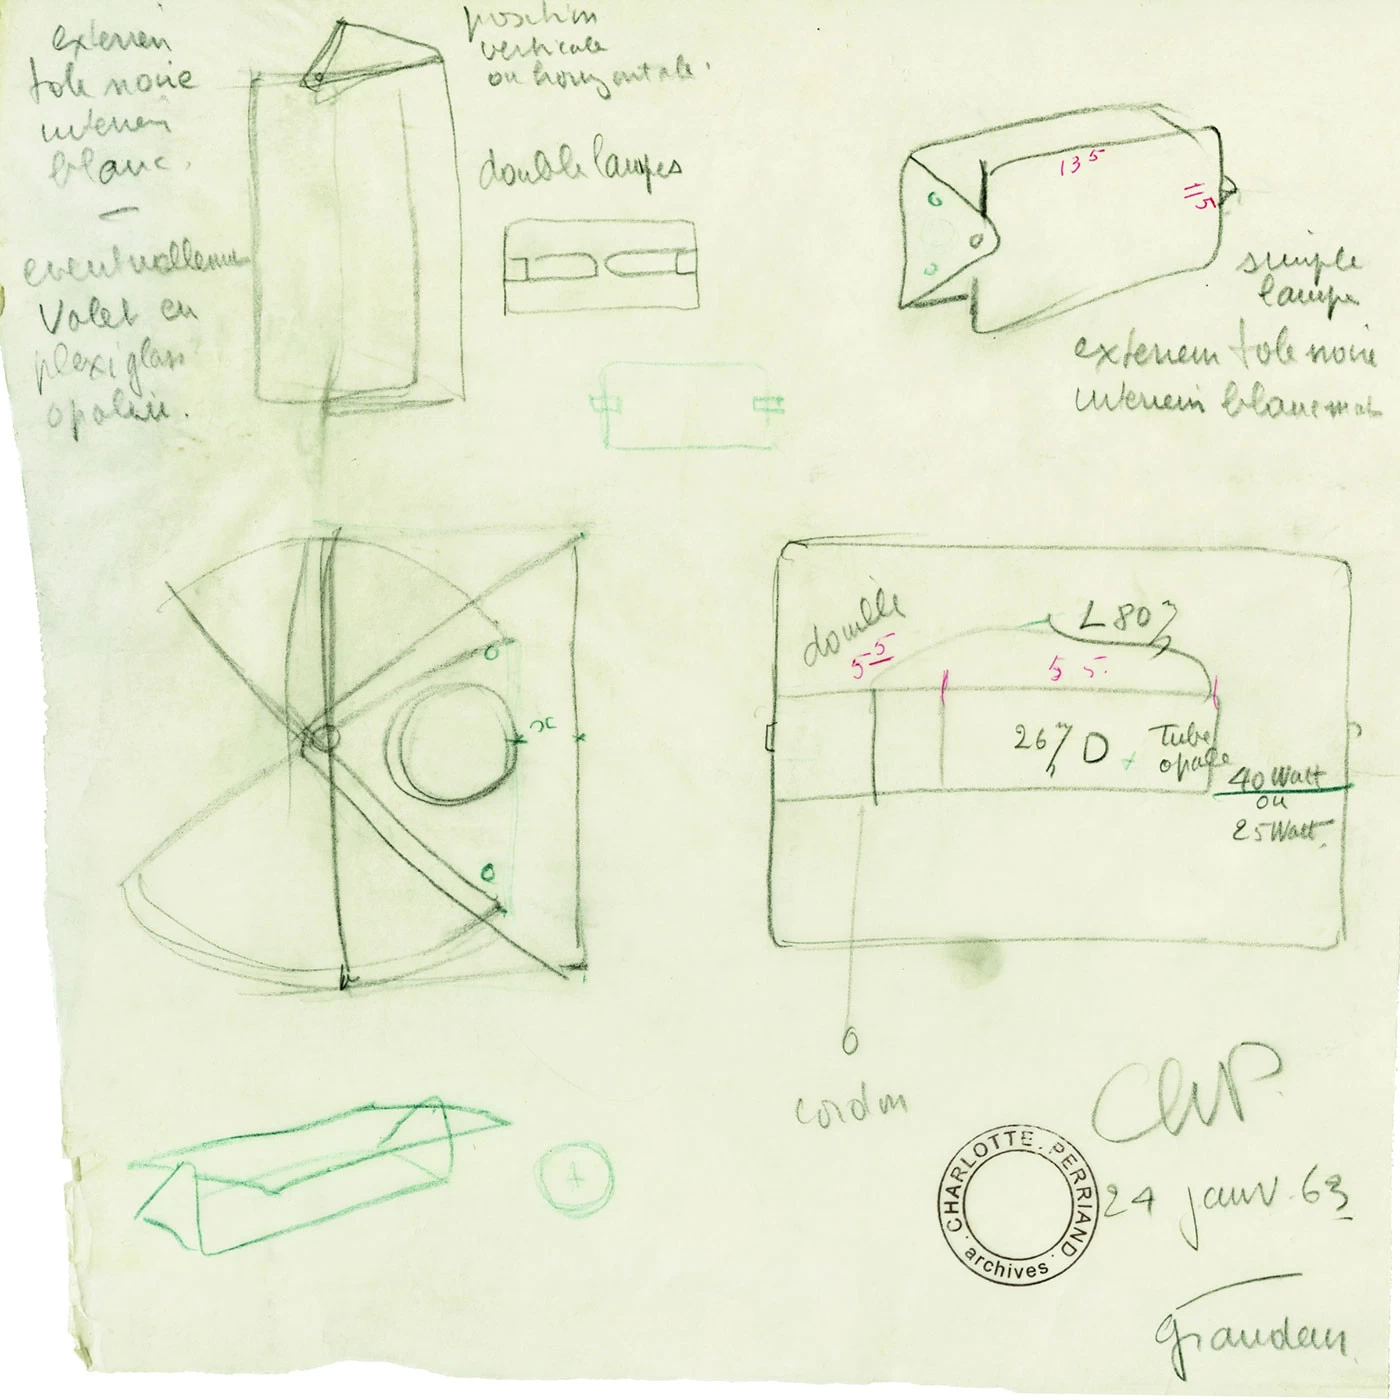 exterieur
tole noire
interieur
blanc.
–
eventuellement
Volet en
plexiglass
opalin.
position
verticale
ou horizontale.
double lampes
13 5
11 5
simple
lampe
exterieur tole noire
interieur blanc mat
x
douille
5 5
L 80
5 5.
26 D
Tube
opale
40 Watt
ou
25 Watt.
cordon
ChP.
CHARLOTTE. PERRIAND
archives
24 janv. 63
grandeur